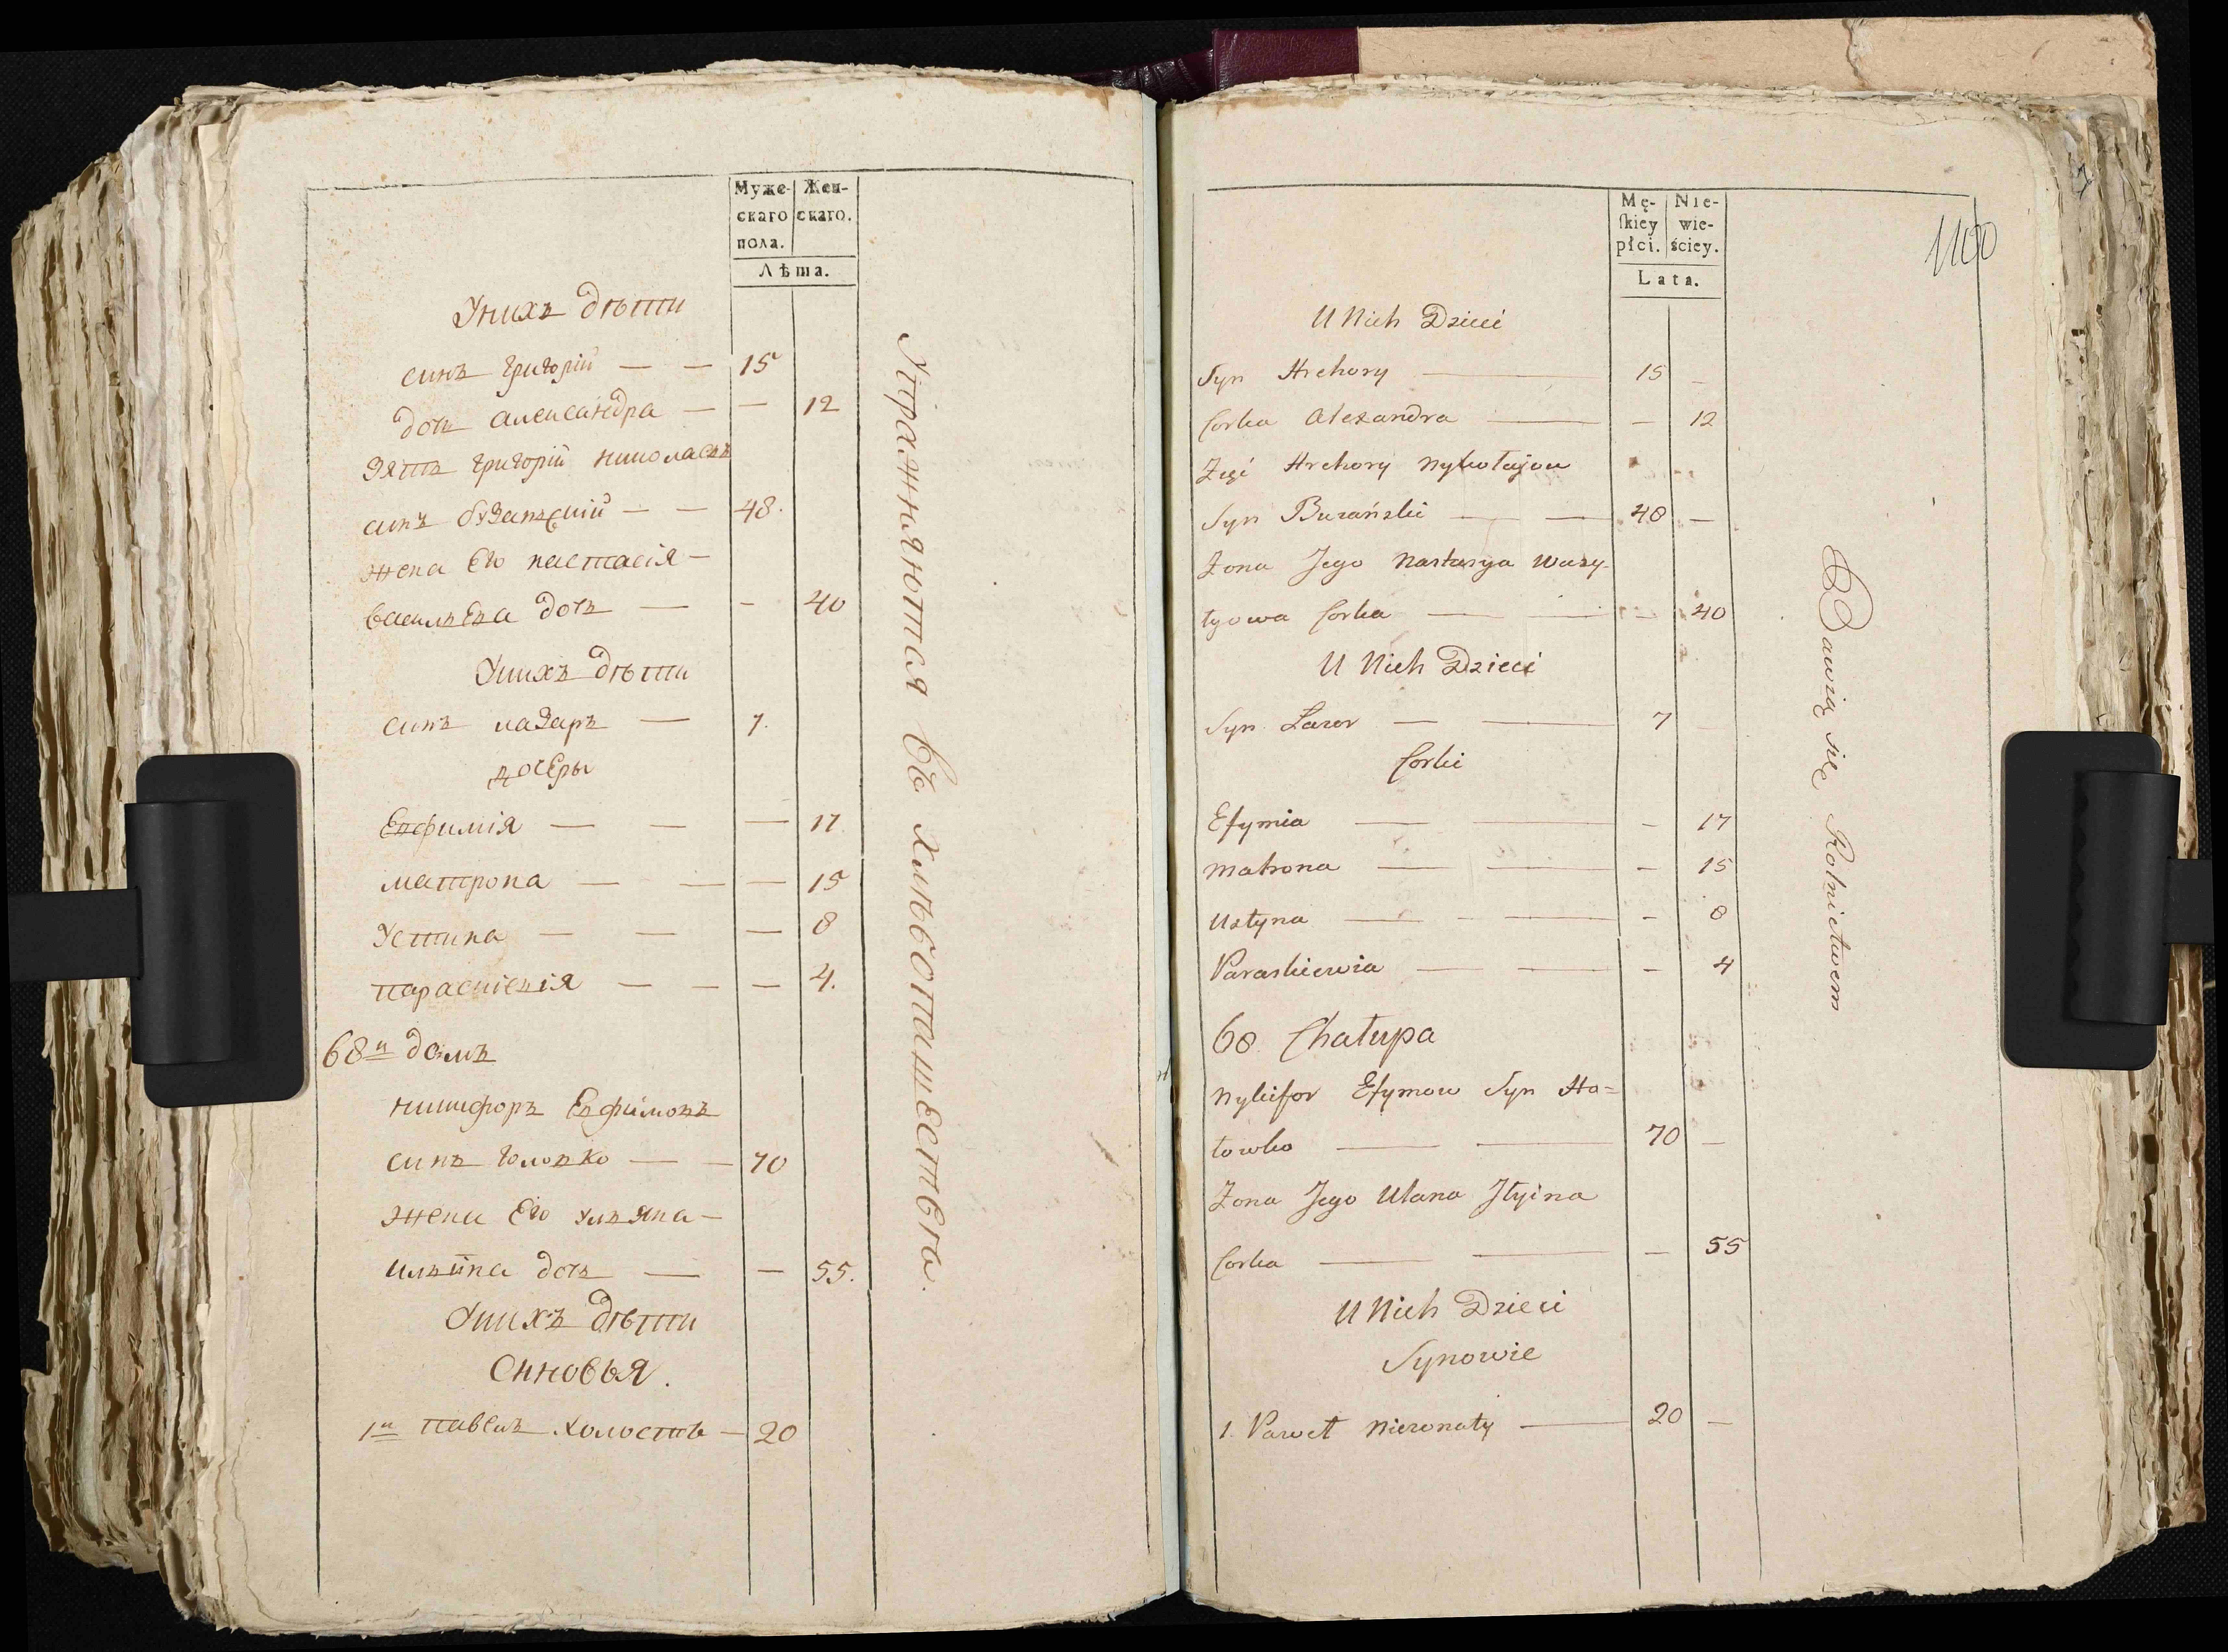 Муже- Жен-
скаго скаго.
пола.
Лѣта.
Унихъ дѣти
синъ григорій — — 15
дочь александра — — 12
Зять григорій николаевъ
синъ бузанскій — — 48.
жена Его настасія —
василѣва дочь — - 40
Унихъ дѣти
синъ лазарь — 7.
дочеры
Евфимія — — — 17
матрона — — — 15
Устина — — — 8
параскіевія — — — 4.
68й домъ
никифоръ Евфимовъ
синъ головко — — 70
жена Его ульяна —
ильіна дочь — — 55.
Унихъ дѣти
Синовья.
1й павелъ холостъ — 20
Упражняются въ хлѣбопашествѣ.
Mę- Nie-
ſkiey wie-
płci. ściey.
Lata.
1100
U Nich Dzieci
Syn Hrehory — 15 —
Corka Alexandra — — 12
Zięć Hrehory Nykołajow
Syn Buzański — — 48 —
Zona Jego Nastasya Wasy-
lyowa Corka — — - 40
U Nich Dzieci
Syn Lazor — — 7
Corki
Efymia — — - 17
Matrona — — - 15
Ustyna — - — - 8
Paraskiewia — — - 4
68 Chałupa
Nykifor Efymow Syn Ho=
łowko — — 70 —
Zona Jego Ulana Jłyina
Corka — — — 55
U Nich Dzieci
Synowie
1. Paweł Nieżonaty — 20 —
Bawią się Rolnictwem